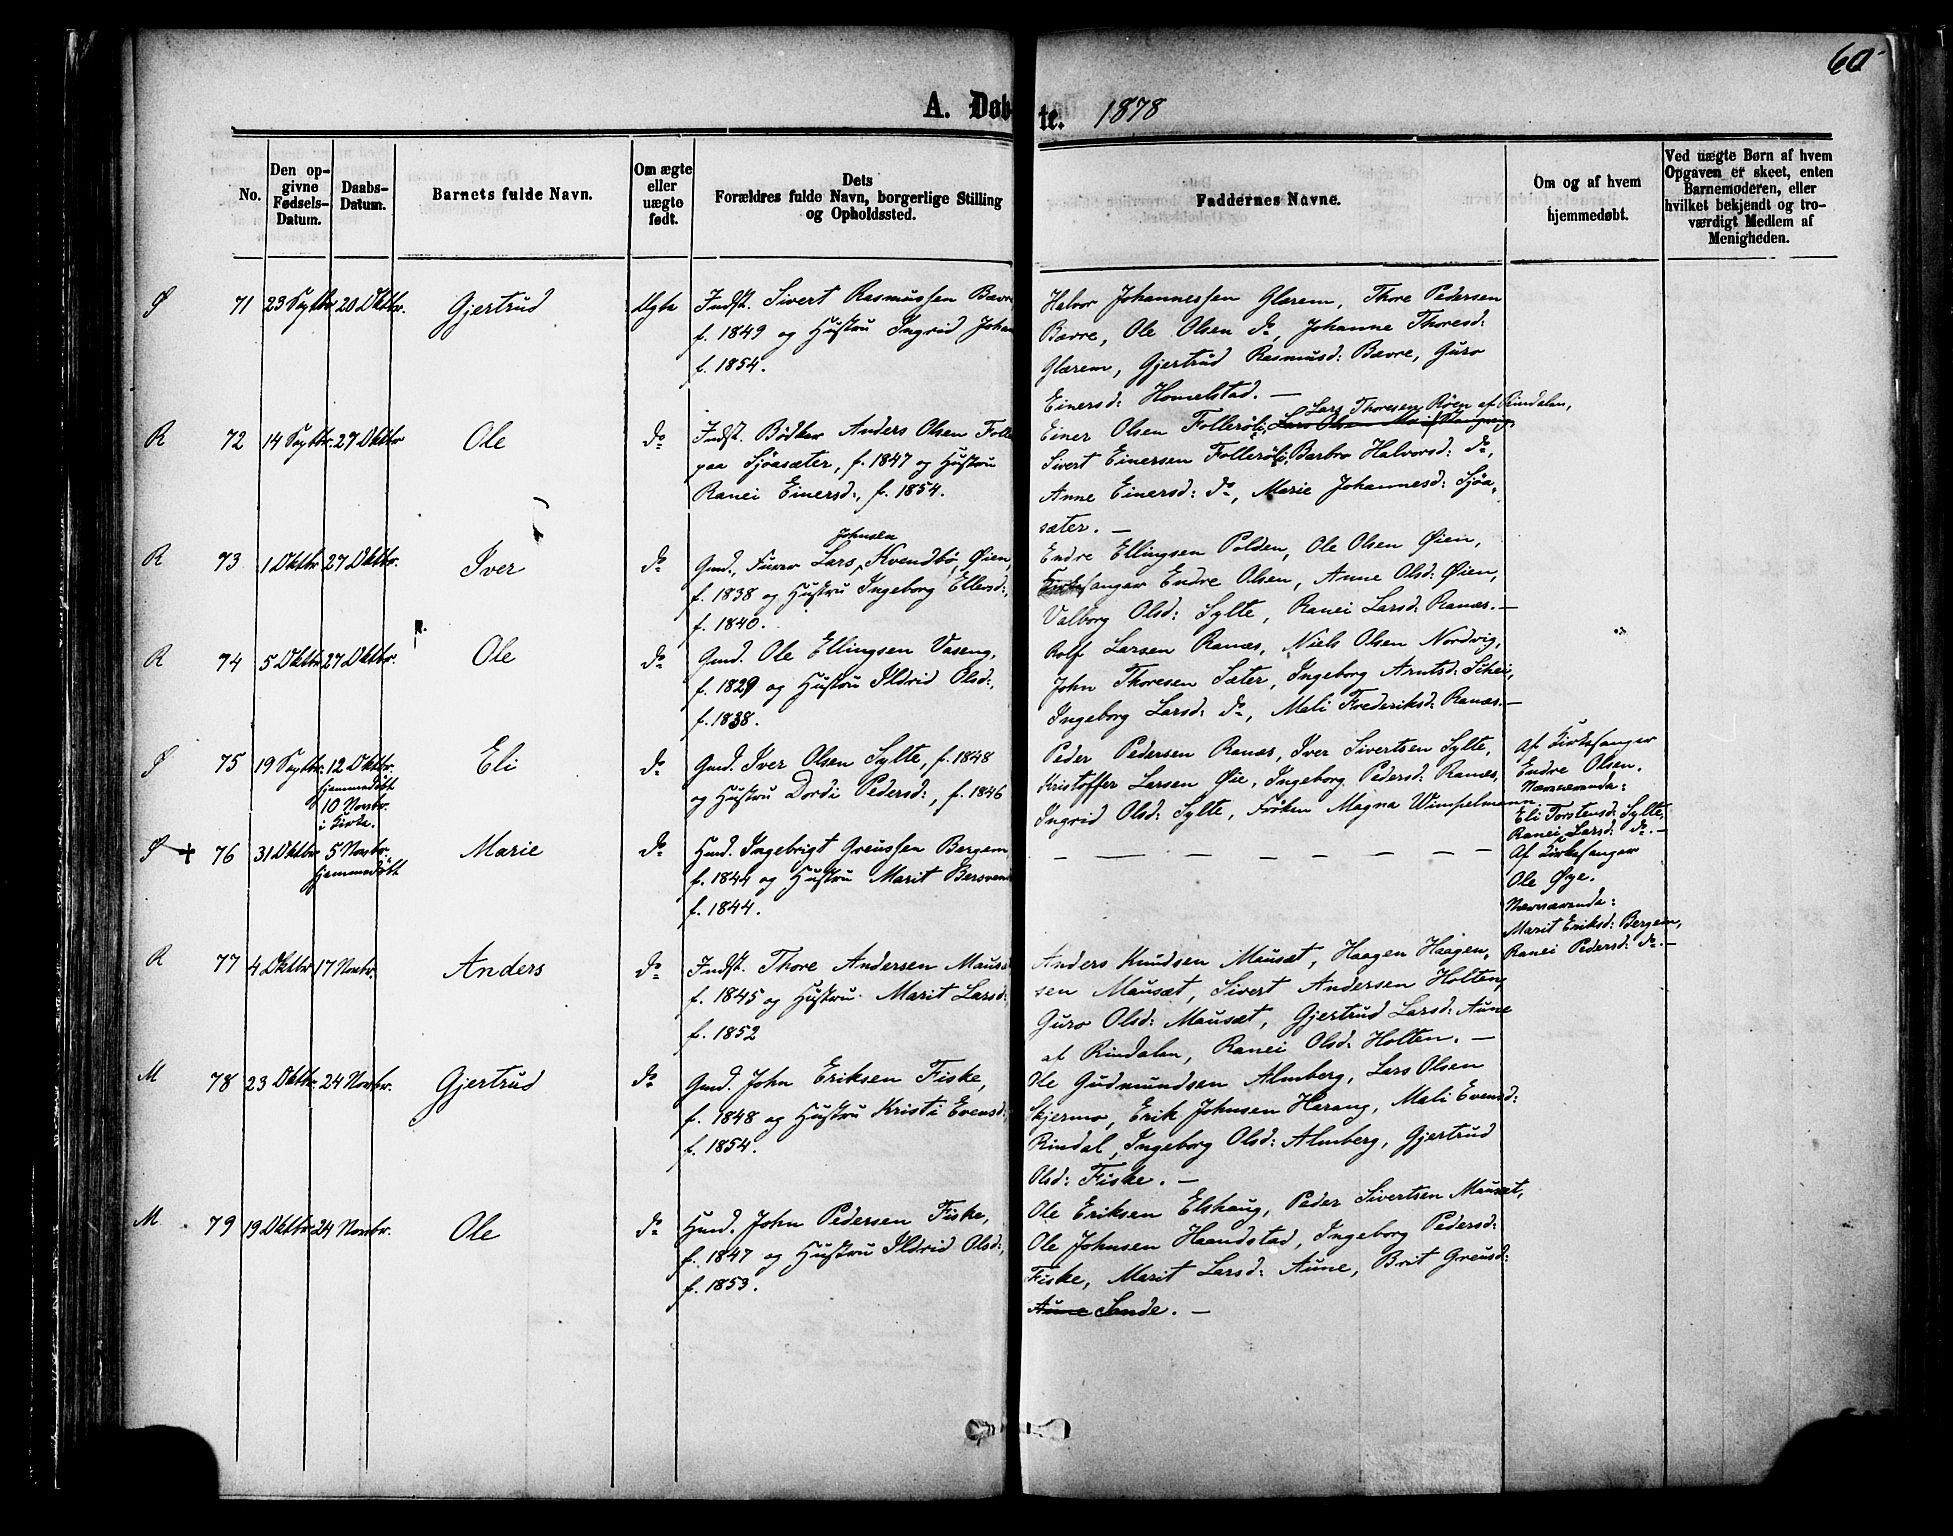 60
A. Døbte. 1878
No.
Den opgivne Fødsels-Datum.
Daabs-Datum.
Barnets fulde Navn.
Om ægte eller uægte født.
Dets Forældres fulde Navn, borgerlige Stilling og Opholdssted.
Faddernes Navne.
Om og af hvem hjemmedøbt.
Ved uægte Børn af hvem Opgaven er skeet, enten Barnemoderen, eller hvilket bekjendt og troværdigt Medlem af Menigheden.
S 71 23 Septbr. 20 Oktbr. Gjertrud Ægte
Indst. Sivert Rasmussen Bævre
f. 1849 og Hustru Ingrid Johan
f. 1854.
Halvor Johannessen Glærem, Thore Pedersen
Bævre, Ole Olsen do, Johanne Thoresd:
Glærem, Gjertrud Rasmusd: Bævre, Guro
Einersd: Homelstad. —
R 72 14 Septbr. 27 Oktbr Ole do
Indst. Bødker Anders Olsen Folle
paa Sjøasæter, f. 1847 og Hustru
Ranei Einersd:, f. 1854.
Lars Thoresen Røen af Rindalen,
Einer Olsen Follerøli, Lars Olsen
Sivert Einersen Follerøli, Barbro Halvorsd: do,
Anne Einersd: do, Marie Johannesd: Sjøa-
sæter. —
R 73 1 Oktbr 27 Oktbr. Iver do
Johnsen
Gmd., Furer Lars, Kvendbø, Øien,
f. 1838 og Hustru Ingeborg Ellevsd:,
f. 1840.
Endre Ellingsen Polden, Ole Olsen Øien,
Kirkesanger Endre Olsen, Anne Olsd: Øien,
Valborg Olsd: Sylte, Ranei Larsd: Ranæs. —
R 74 5 Oktbr 27 Oktbr. Ole do
Gmd. Ole Ellingsen Vaseng,
f. 1829 og Hustru Ildrid Olsd:,
f. 1838.
Rolf Larsen Ranæs, Niels Olsen Nordvig,
John Thoresen Sæter, Ingeborg Arntsd: Schei,
Ingeborg Larsd: do, Mali Frederiksd: Ranæs. —
S 75 19 Septbr. 12 Oktbr. Eli do
hjemmedøbt
10 Novbr.
i Kirke.
Gmd. Iver Olsen Sylte, f. 1848
og Hustru Dordi Pedersd:, f. 1846
Peder Pedersen Ranæs, Iver Sivertsen Sylte,
Kristoffer Larsen Øie, Ingeborg Pedersd: Ranæs,
Ingrid Olsd: Sylte, Frøken Magna Wimpelmann
Af Kirkesanger
Endre Olsen.
Nærværende:
Eli Torstensd: Sylte,
Ranei Larsd: do. —
S + 76 31 Oktbr 5 Novbr. Marie do
hjemmedøbt
Gmd. Ingebrigt Greussen Bergem
f. 1844 og Hustru Marit Bersvend
f. 1844.
— — — — — — — —
Af Kirkesanger
Ole Øye.
Nærværende:
Marit Eriksd: Bergem,
Ranei Pedersd: do. —
R 77 4 Oktbr 17 Novbr. Anders do
Indst. Thore Andersen Mausæ
f. 1845 og Hustru Marit Larsd:
f. 1852
Anders Knudsen Mausæt, Haagen Haagen-
sen Mausæt, Sivert Andersen Holten,
Guro Olsd: Mausæt, Gjertrud Larsd: Aune
af Rindalen, Ranei Olsd: Holten. —
M 78 23 Oktbr. 24 Novbr. Gjertrud do
Gmd. John Eriksen Fiske,
f. 1848 og Hustru Kristi Evensd:,
f. 1854.
Ole Gudmundsen Almberg, Lars Olsen
Skjermo, Erik Johnsen Harang, Mali Evensd:
Rindal, Ingeborg Olsd: Almberg, Gjertrud
Olsd: Fiske. —
M 79 19 Oktbr 24 Novbr. Ole do
Gmd. John Pedersen Fiske,
f. 1847 og Hustru Ildrid Olsd:,
f. 1853.
Ole Eriksen Elshaug, Peder Sivertsen Mausæt,
Ole Johnsen Haandstad, Ingeborg Pedersd:
Fiske, Marit Larsd: Aune, Brit Greusd:
Aune Sande. —